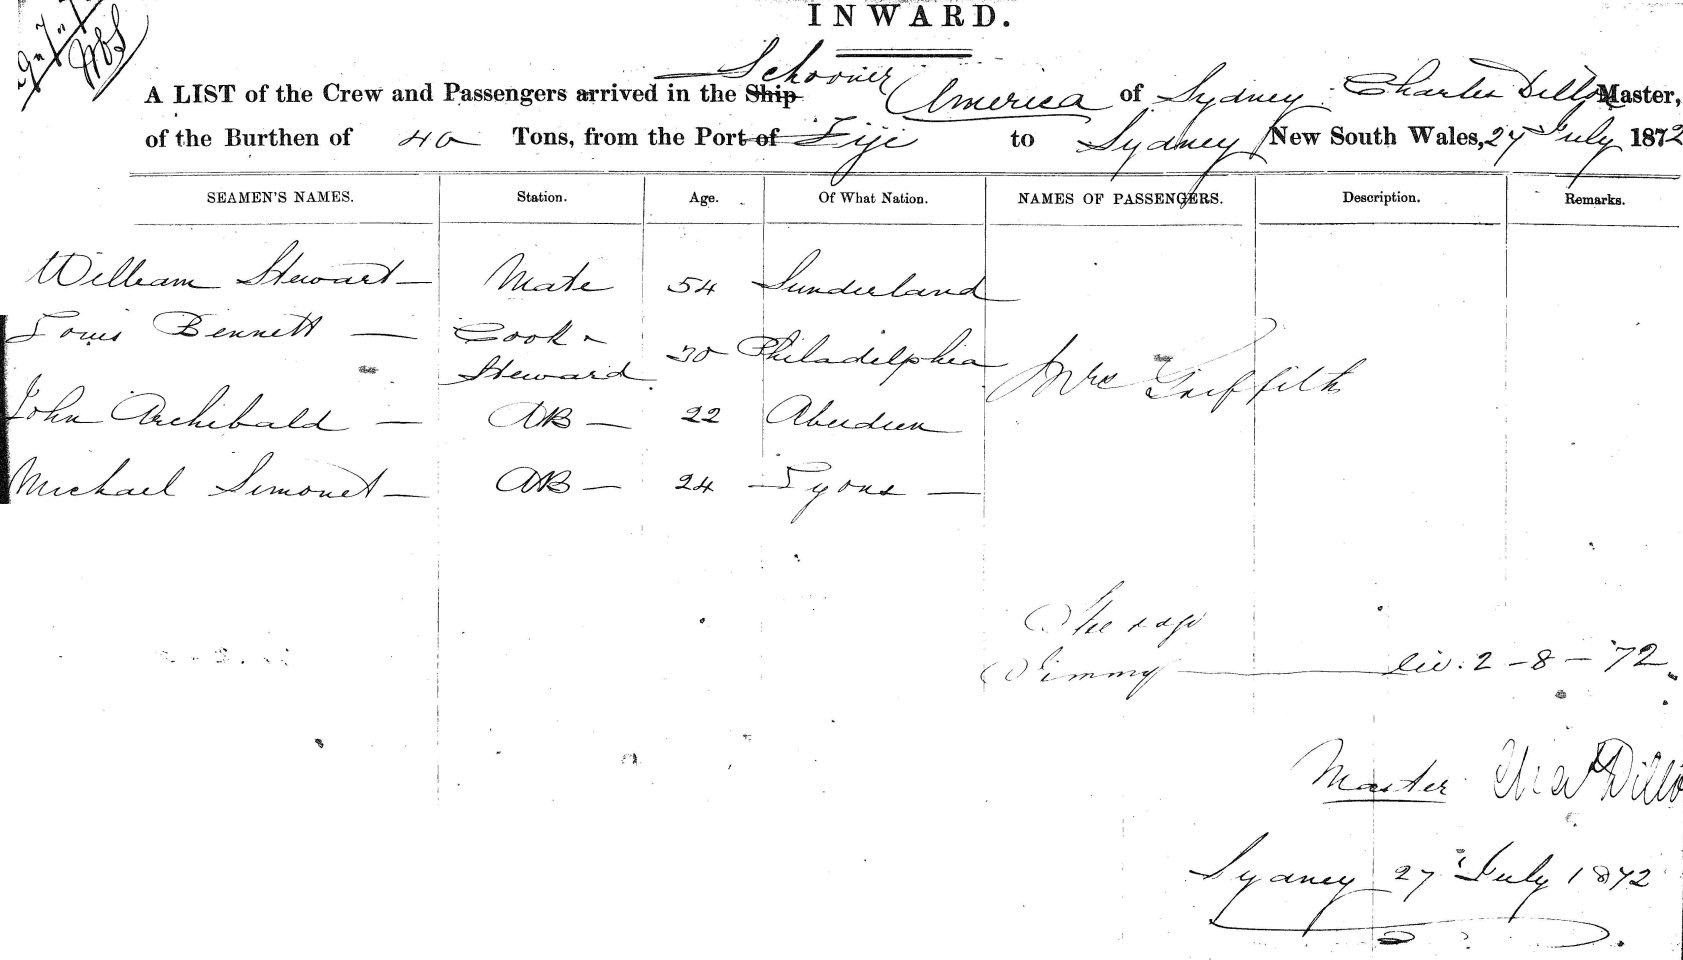 INWARD.
A LIST of the Crew and Passengers arrived in the Ship Schooner America of Sydney Charles Dillon Master,
of the Burthen of 40 Tons, from the Port of Fiji to Sydney New South Wales, 27 July 1872
SEAMEN'S NAMES. Station. Age. Of What Nation. NAMES OF PASSENGERS. Description. Remarks.
William Stewart Mate 54 Sunderland
Louis Bennett Cook & Steward 30 Philadelphia
Mrs Griffith
John Archibald AB 22 Aberdeen
Michael Simonet AB 24 Lyons
Steerage
Jimmy 2-8-'72
Master Chas Dillo
Sydney 27 July 1872